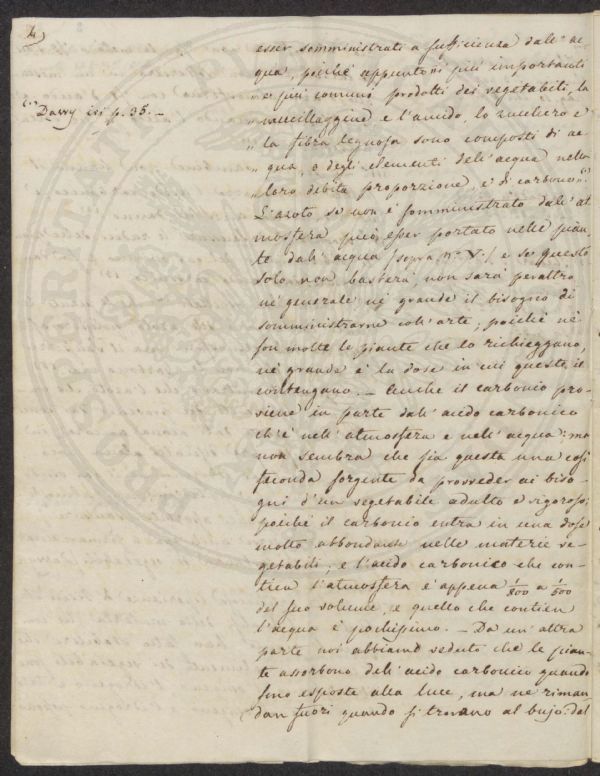 4)
esser somministrati a sufficienza dall' ac-
qua, poiché appunto „i più importanti
„ e più comuni prodotti dei vegetabili, la
„ muccillaggine e l'amido, lo zucchero e
„ la fibra legnosa sono composti di ac-
„ qua, o degli elementi dell' acqua nella
„ loro debita proporzione, e di carbonio."(1)
(1) Dawy ivi p. 35. _
L'azoto se non è somministrato dall' at
mosfera può esser portato nelle pian-
te dall' acqua (sopra n.° V.) e se questo
solo non basterà, non sarà peraltro
nè generale nè grande il bisogno di
somministrarne coll' arte, poichè nè
son molte le piante che lo richieggano,
nè grande è la dose in cui queste il
contengano. _ Anche il carbonio pro-
viene in parte dall' acido carbonico
ch'è nell' atmosfera e nell' acqua: ma
non sembra che sia questa una così
feconda sorgente da provveder ai biso-
gni d'un vegetabile adulto e vigoroso;
poichè il carbonio entra in una dose
molto abbondante nelle materie ve-
getabili; e l'acido carbonico che con-
tien l'atmosfera è appena 1/800 a 1/500
del suo volume, e quello che contien
l'acqua è pochissimo. _ Da un' altra
parte noi abbiamo veduto che le pian-
te assorbono dell' acido carbonico quando
sono esposte alla luce, ma ne riman
dan fuori quando si trovano al bujo: dal